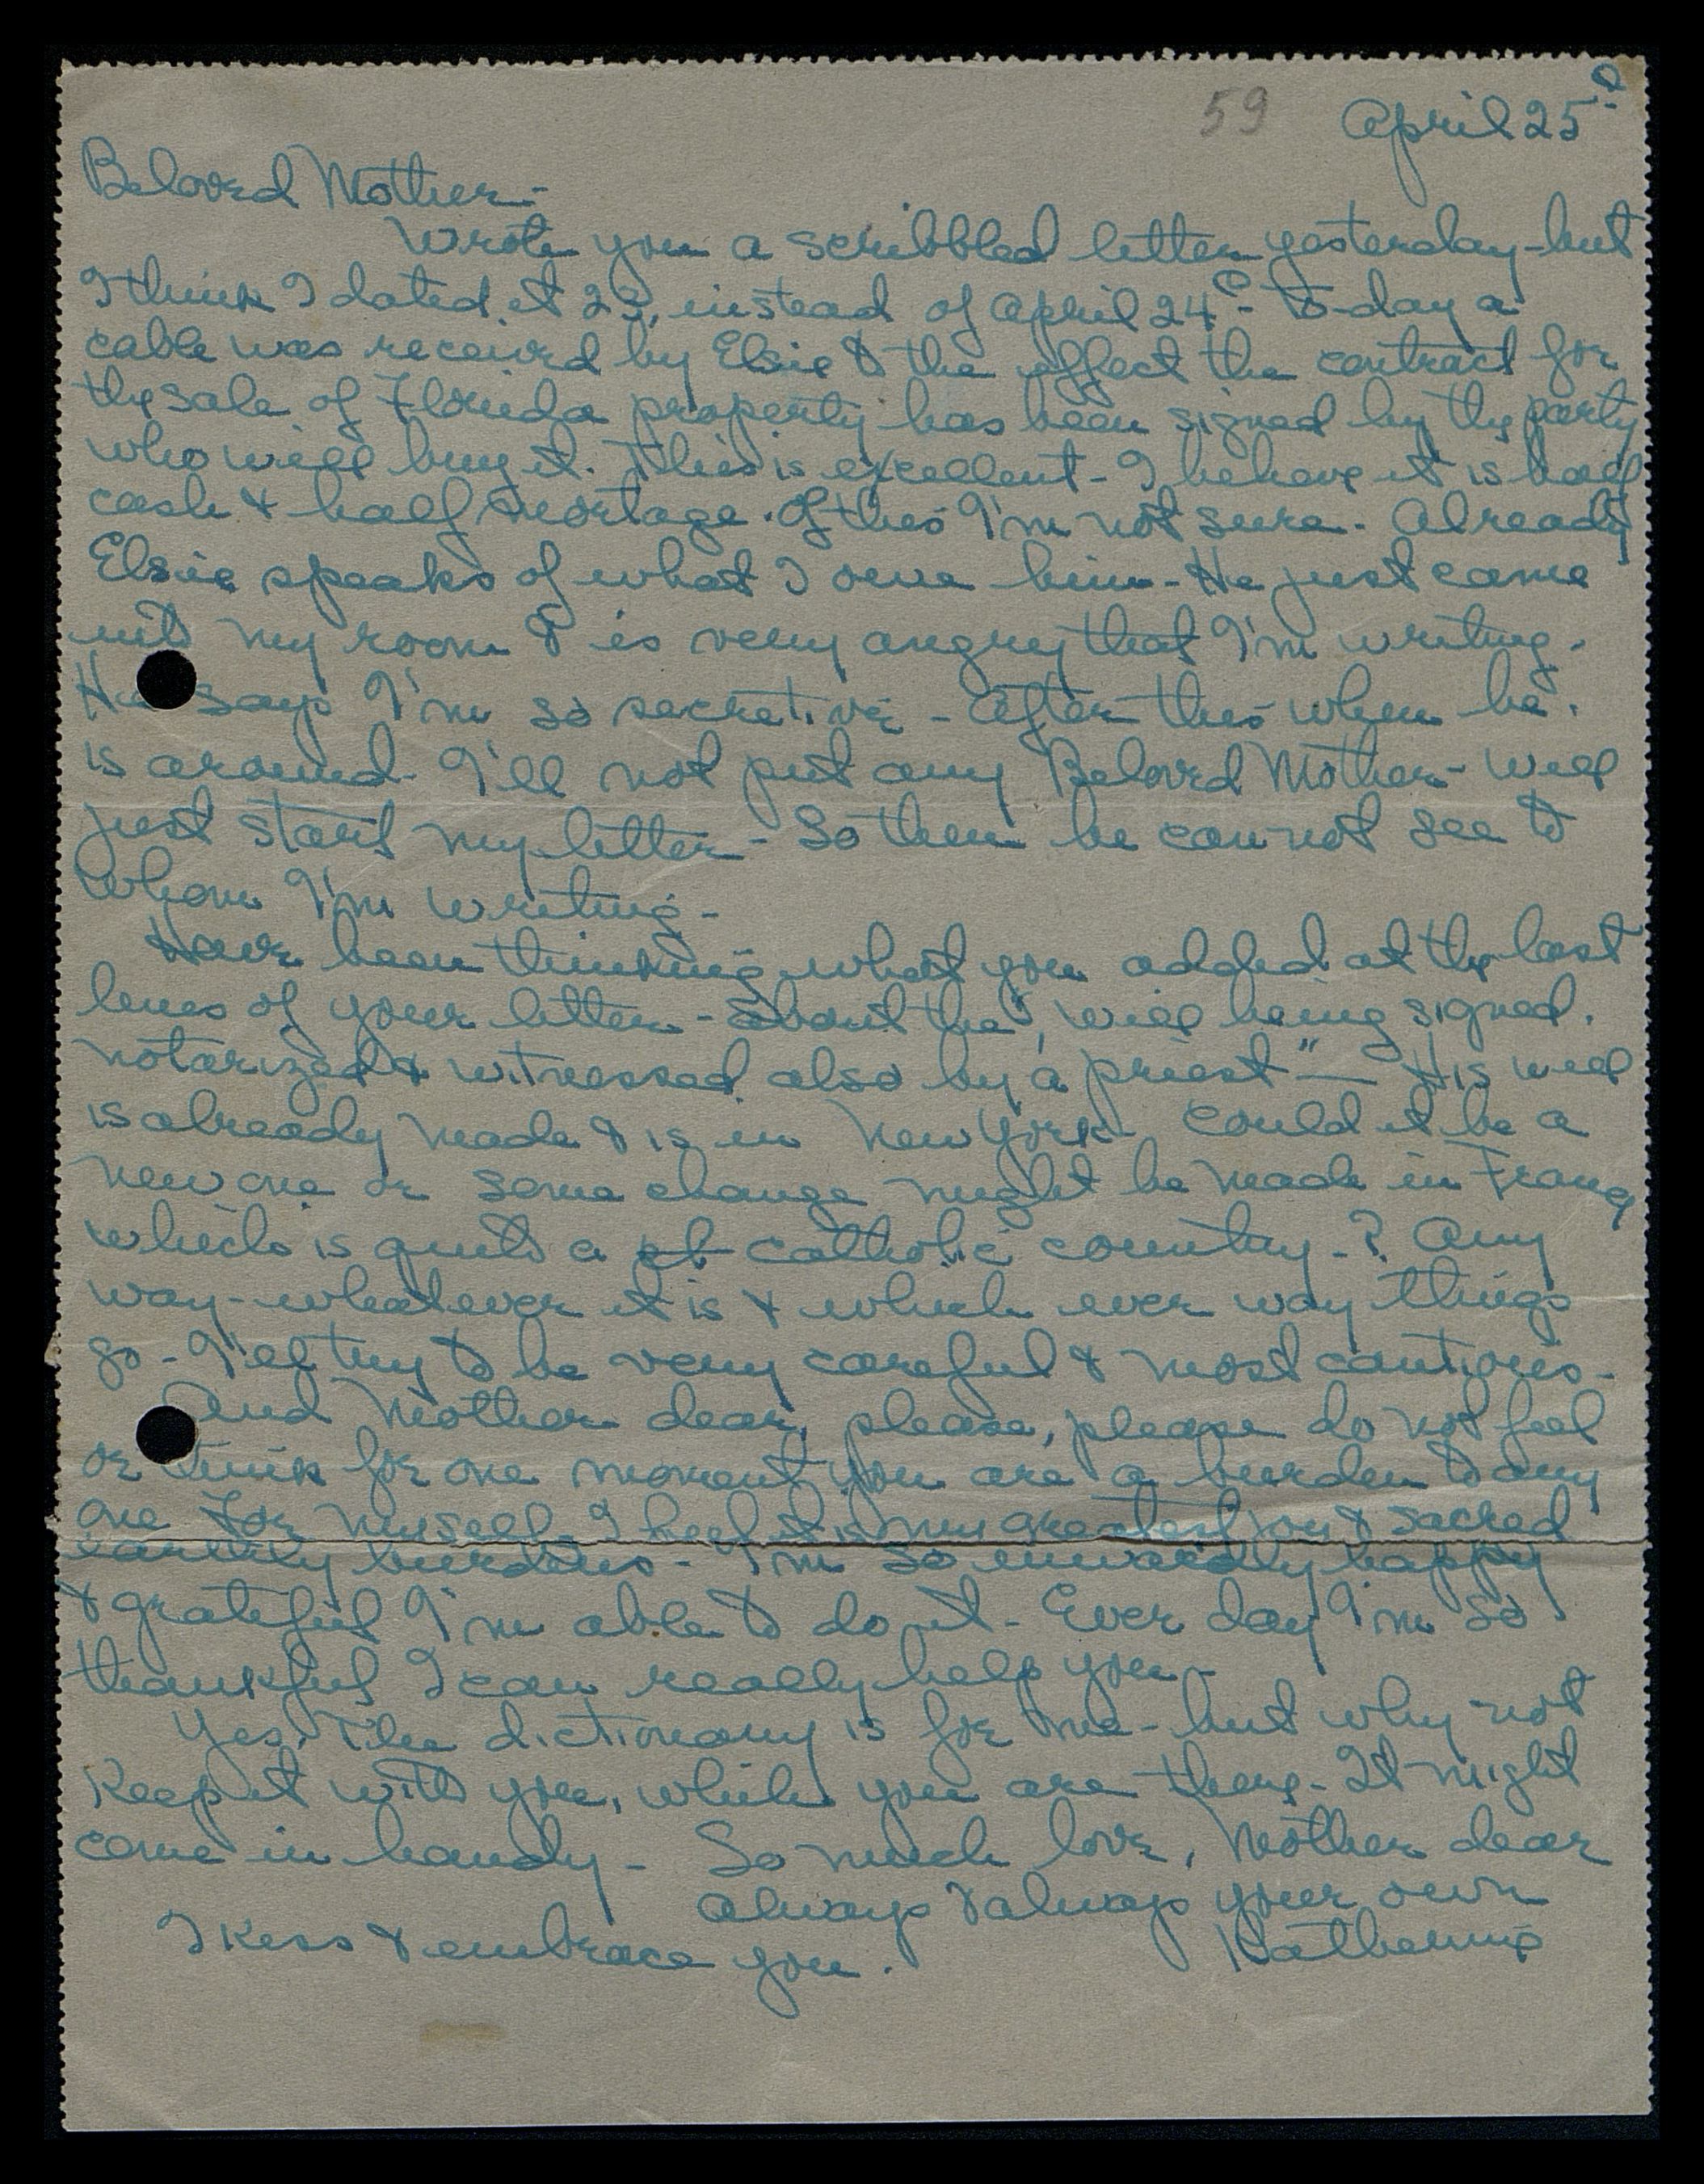 59 April 25
Beloved Mother-
Wrote you a scribbled letter yesterday - but
I think I dated it 23, instead of April 24th - To-day a
cable was received by Elsie to the effect the contract for
the sale of Florida property has been signed by the party
who will buy it. This is excellent - I behave it is half
cash & half mortage. Of this I'm not sure - Already
Elsie speaks of what I owe him - He just came
into my room & is very angry that I'm writing.
He says I'm so secretive - After this when he
is around - I'll not put any Beloved Mother - will
just start my letter - So then he can not see to
whom I'm writing -
Have been thinking what you added at the last
lines of your letter - about the "will being signed,
notarized & witnessed also by a priest" — His will
is already made & is in New York - Could it be a
new one or some change might be made in France
which is quite a catholic country - ? Any
way - whatever it is & which ever way things
go - I'll try to be very careful & most cautious -
And Mother dear, please, please do not feel
or think for one moment you are a burden to any
one For myself - I feel it is my greatest joy & sacred
earthly burdens - I'm so inwardly happy
& grateful I'm able to do it - Ever day I'm so
thankful I can really help you -
Yes, The dictionary is for me - but why not
Keep it with you, while you are there - It might
come in handy - So much love, Mother dear
always & always your own
I Kess & embrace you. Katherine